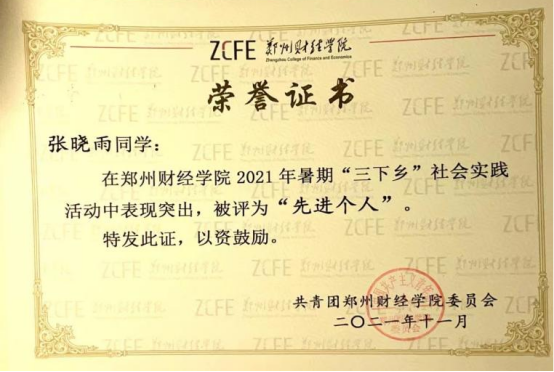 ZCFE 郑州财经学院
Zhengzhou College of Finance and Economics
荣誉证书
张晓雨同学：
在郑州财经学院2021年暑期“三下乡”社会实践
活动中表现突出，被评为“先进个人”。
特发此证，以资鼓励。
共青团郑州财经学院委员会
二〇二一年十一月